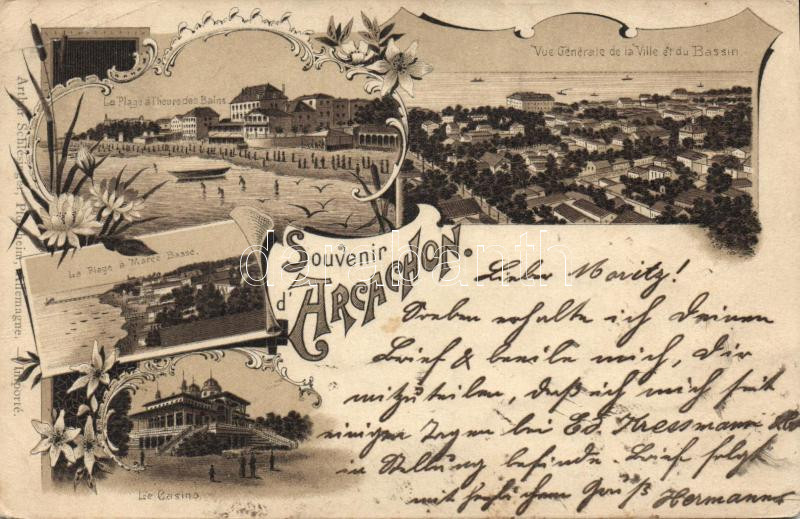 La Plage à l'heure des Bains
Vue Générale de la Ville et du Bassin
La Plage à Marée Basse.
Souvenir
d'ARCACHON.
Le Casino
Lieber Moritz!
Soeben erhalte ich Deinen
Brief & beeile mich, Dir
mitzuteilen, daß ich mich seit
einigen Tagen bei Ed. Kressmann
in Stellung befinde. Brief folgt
mit herzlichem Gruß Hermann
Allemagne. Importé.
darabanth